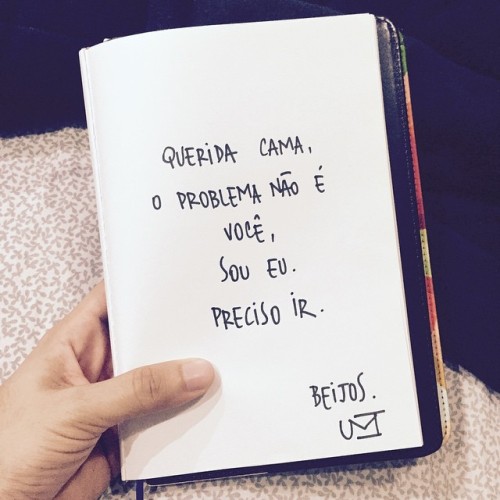 QUERIDA CAMA,
O PROBLEMA NÃO É
VOCÊ,
SOU EU.
PRECISO IR.
BEIJOS.